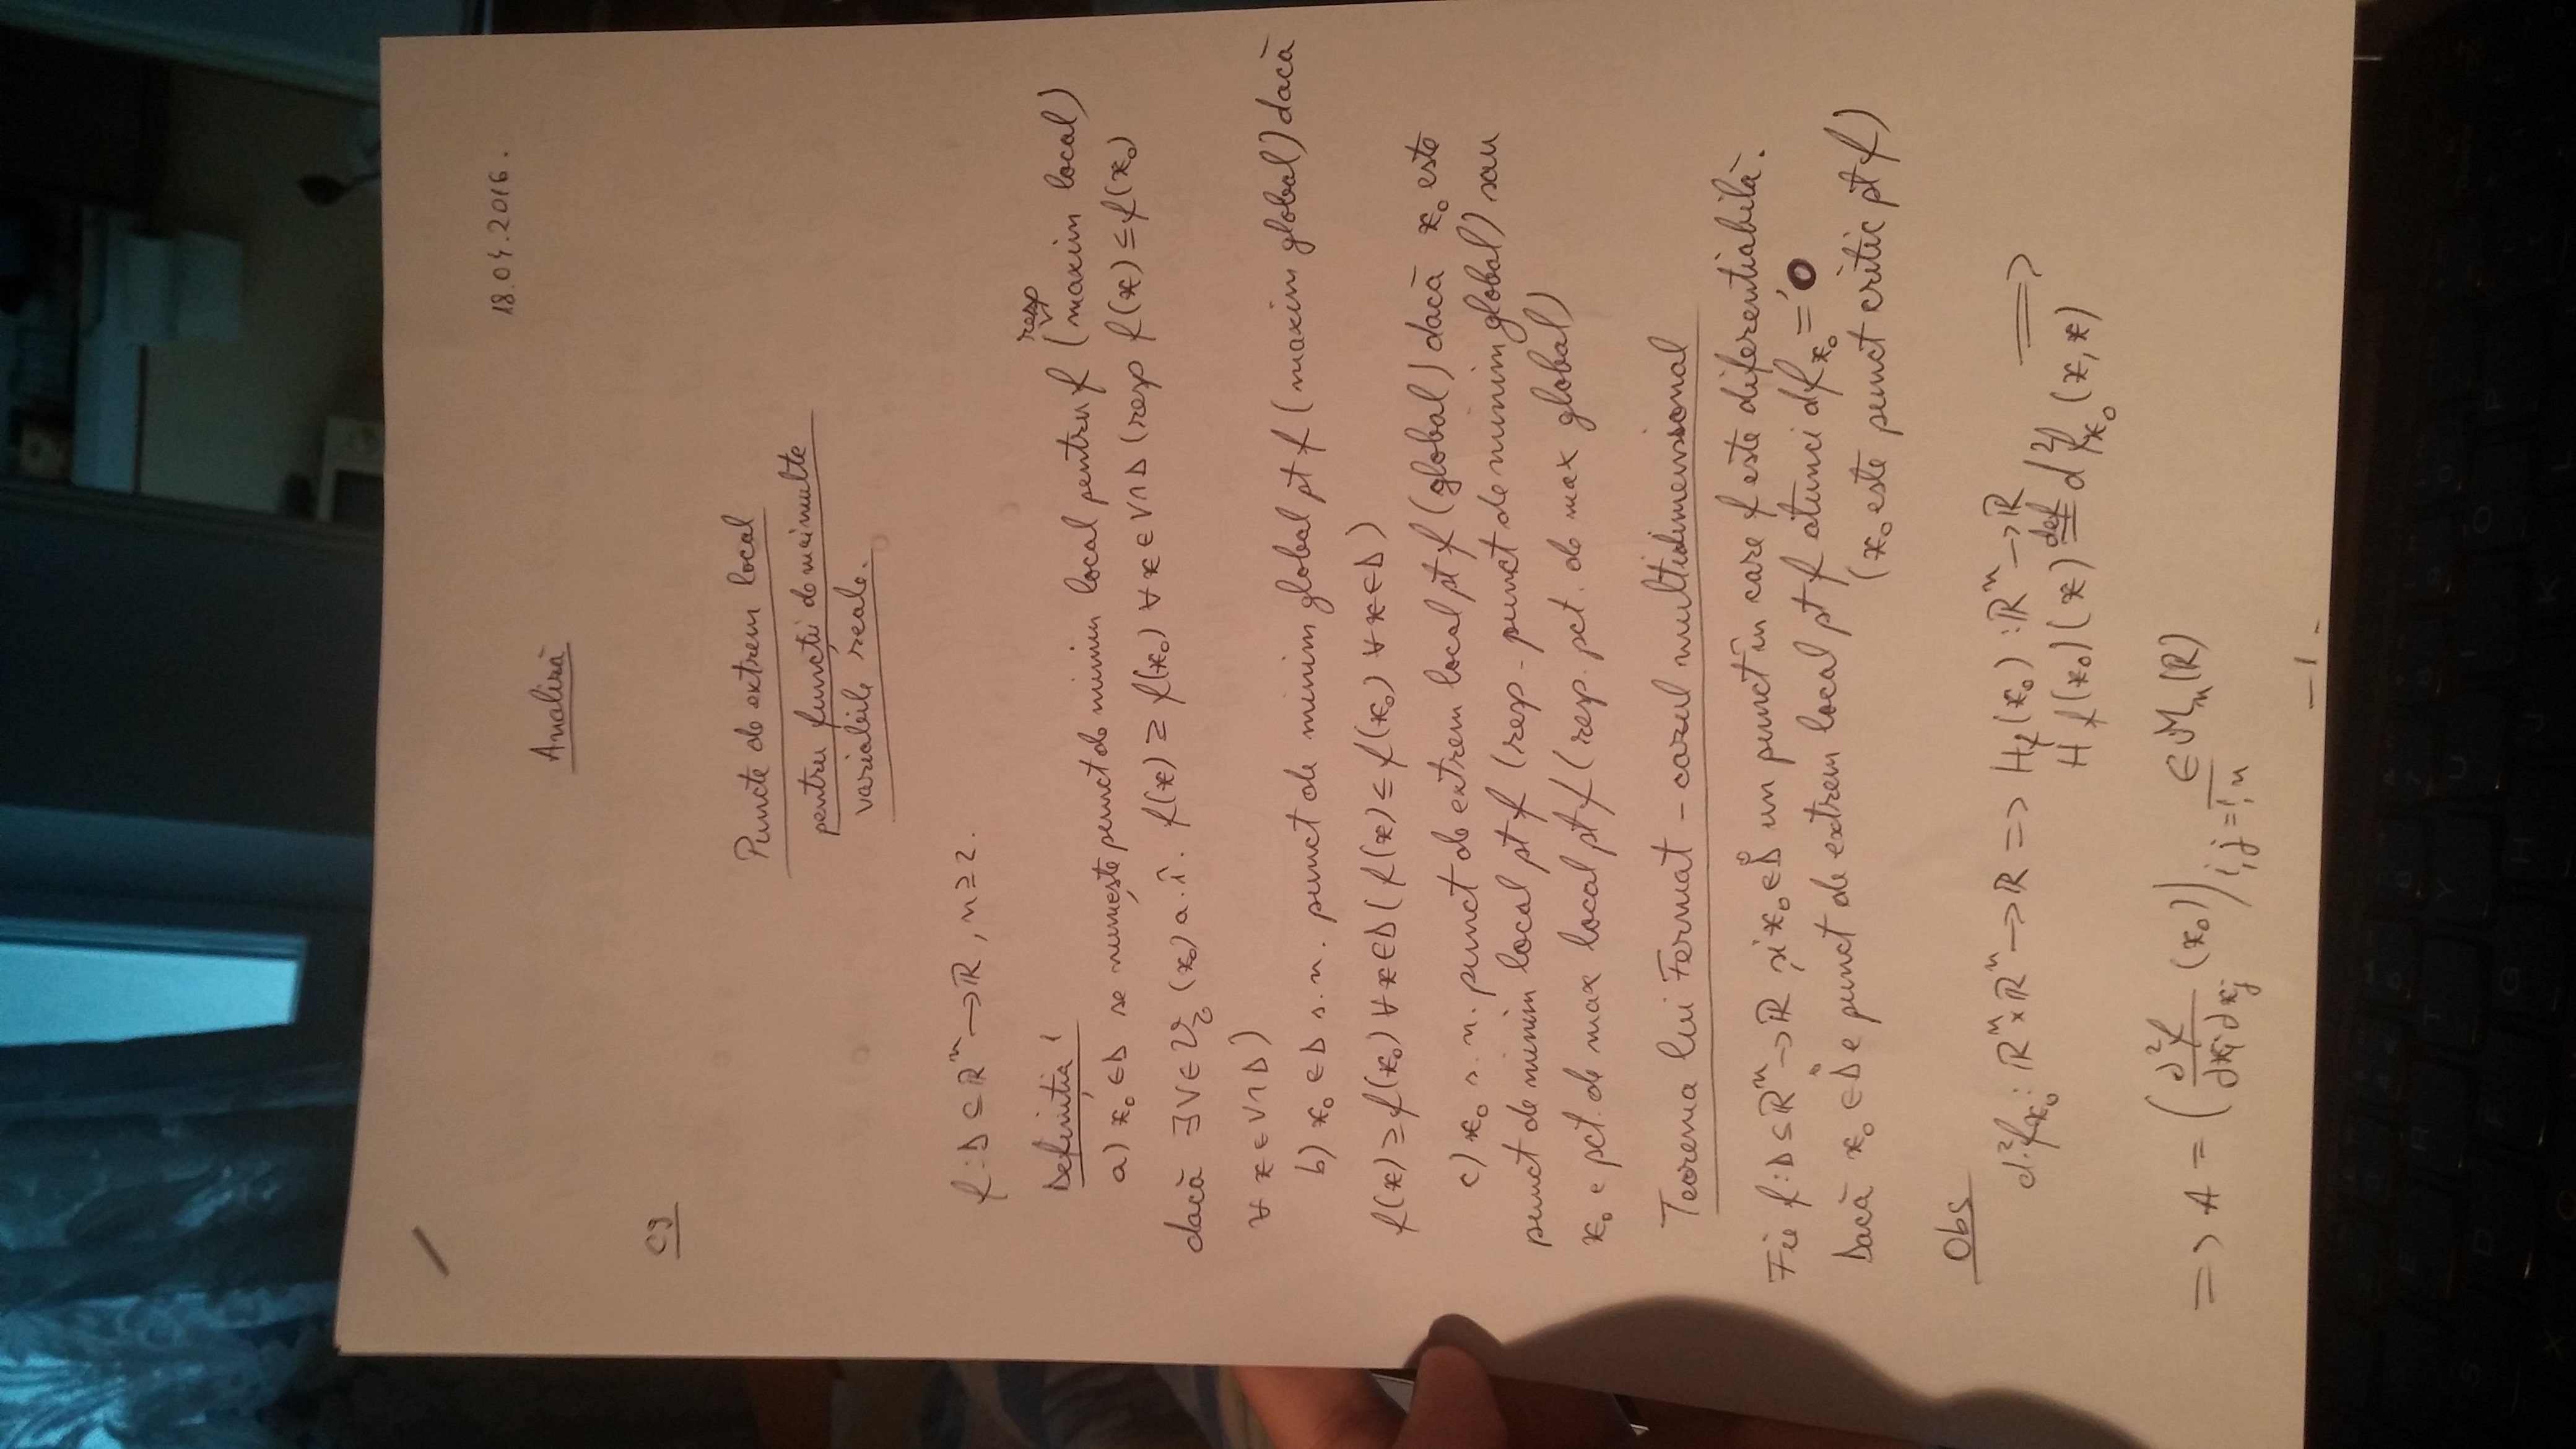 18.04.2016.
Analiză
C9
Puncte de extrem local
pentru funcții de mai multe
variabile reale.
f : D ⊆ ℝⁿ → ℝ, n ≥ 2.
Definiția 1
resp
a) x₀ ∈ D se numește punct de minim local pentru f (maxim local)
dacă ∃ V ∈ 𝒱 (x₀) a. î. f(x) ≥ f(x₀) ∀ x ∈ V ∩ D (resp f(x) ≤ f(x₀)
∀ x ∈ V ∩ D)
b) x₀ ∈ D s. n. punct de minim global pt f (maxim global) dacă
f(x) ≥ f(x₀) ∀ x ∈ D (f(x) ≤ f(x₀) ∀ x ∈ D)
c) x₀ s. n. punct de extrem local pt f (global) dacă x₀ este
punct de minim local pt f (resp. punct de minim global) sau
x₀ e pct. de max local pt f (resp. pct. de max global)
Teorema lui Fermat – cazul multidimensional
Fie f : D ⊆ ℝⁿ → ℝ și x₀ ∈ D̊ un punct în care f este diferentiabilă.
Dacă x₀ ∈ D̊ e punct de extrem local pt f atunci df_x₀ = 0
(x₀ este punct critic pt f)
Obs
d²f_x₀ : ℝⁿ × ℝⁿ → ℝ => H_f(x₀) : ℝⁿ → ℝ =>
H_f(x₀)(x) def= d²f_x₀ (x, x)
=> A = (∂²f/∂xi∂xj (x₀)) i,j = 1,n ∈ ℳn(ℝ)
– 1 -